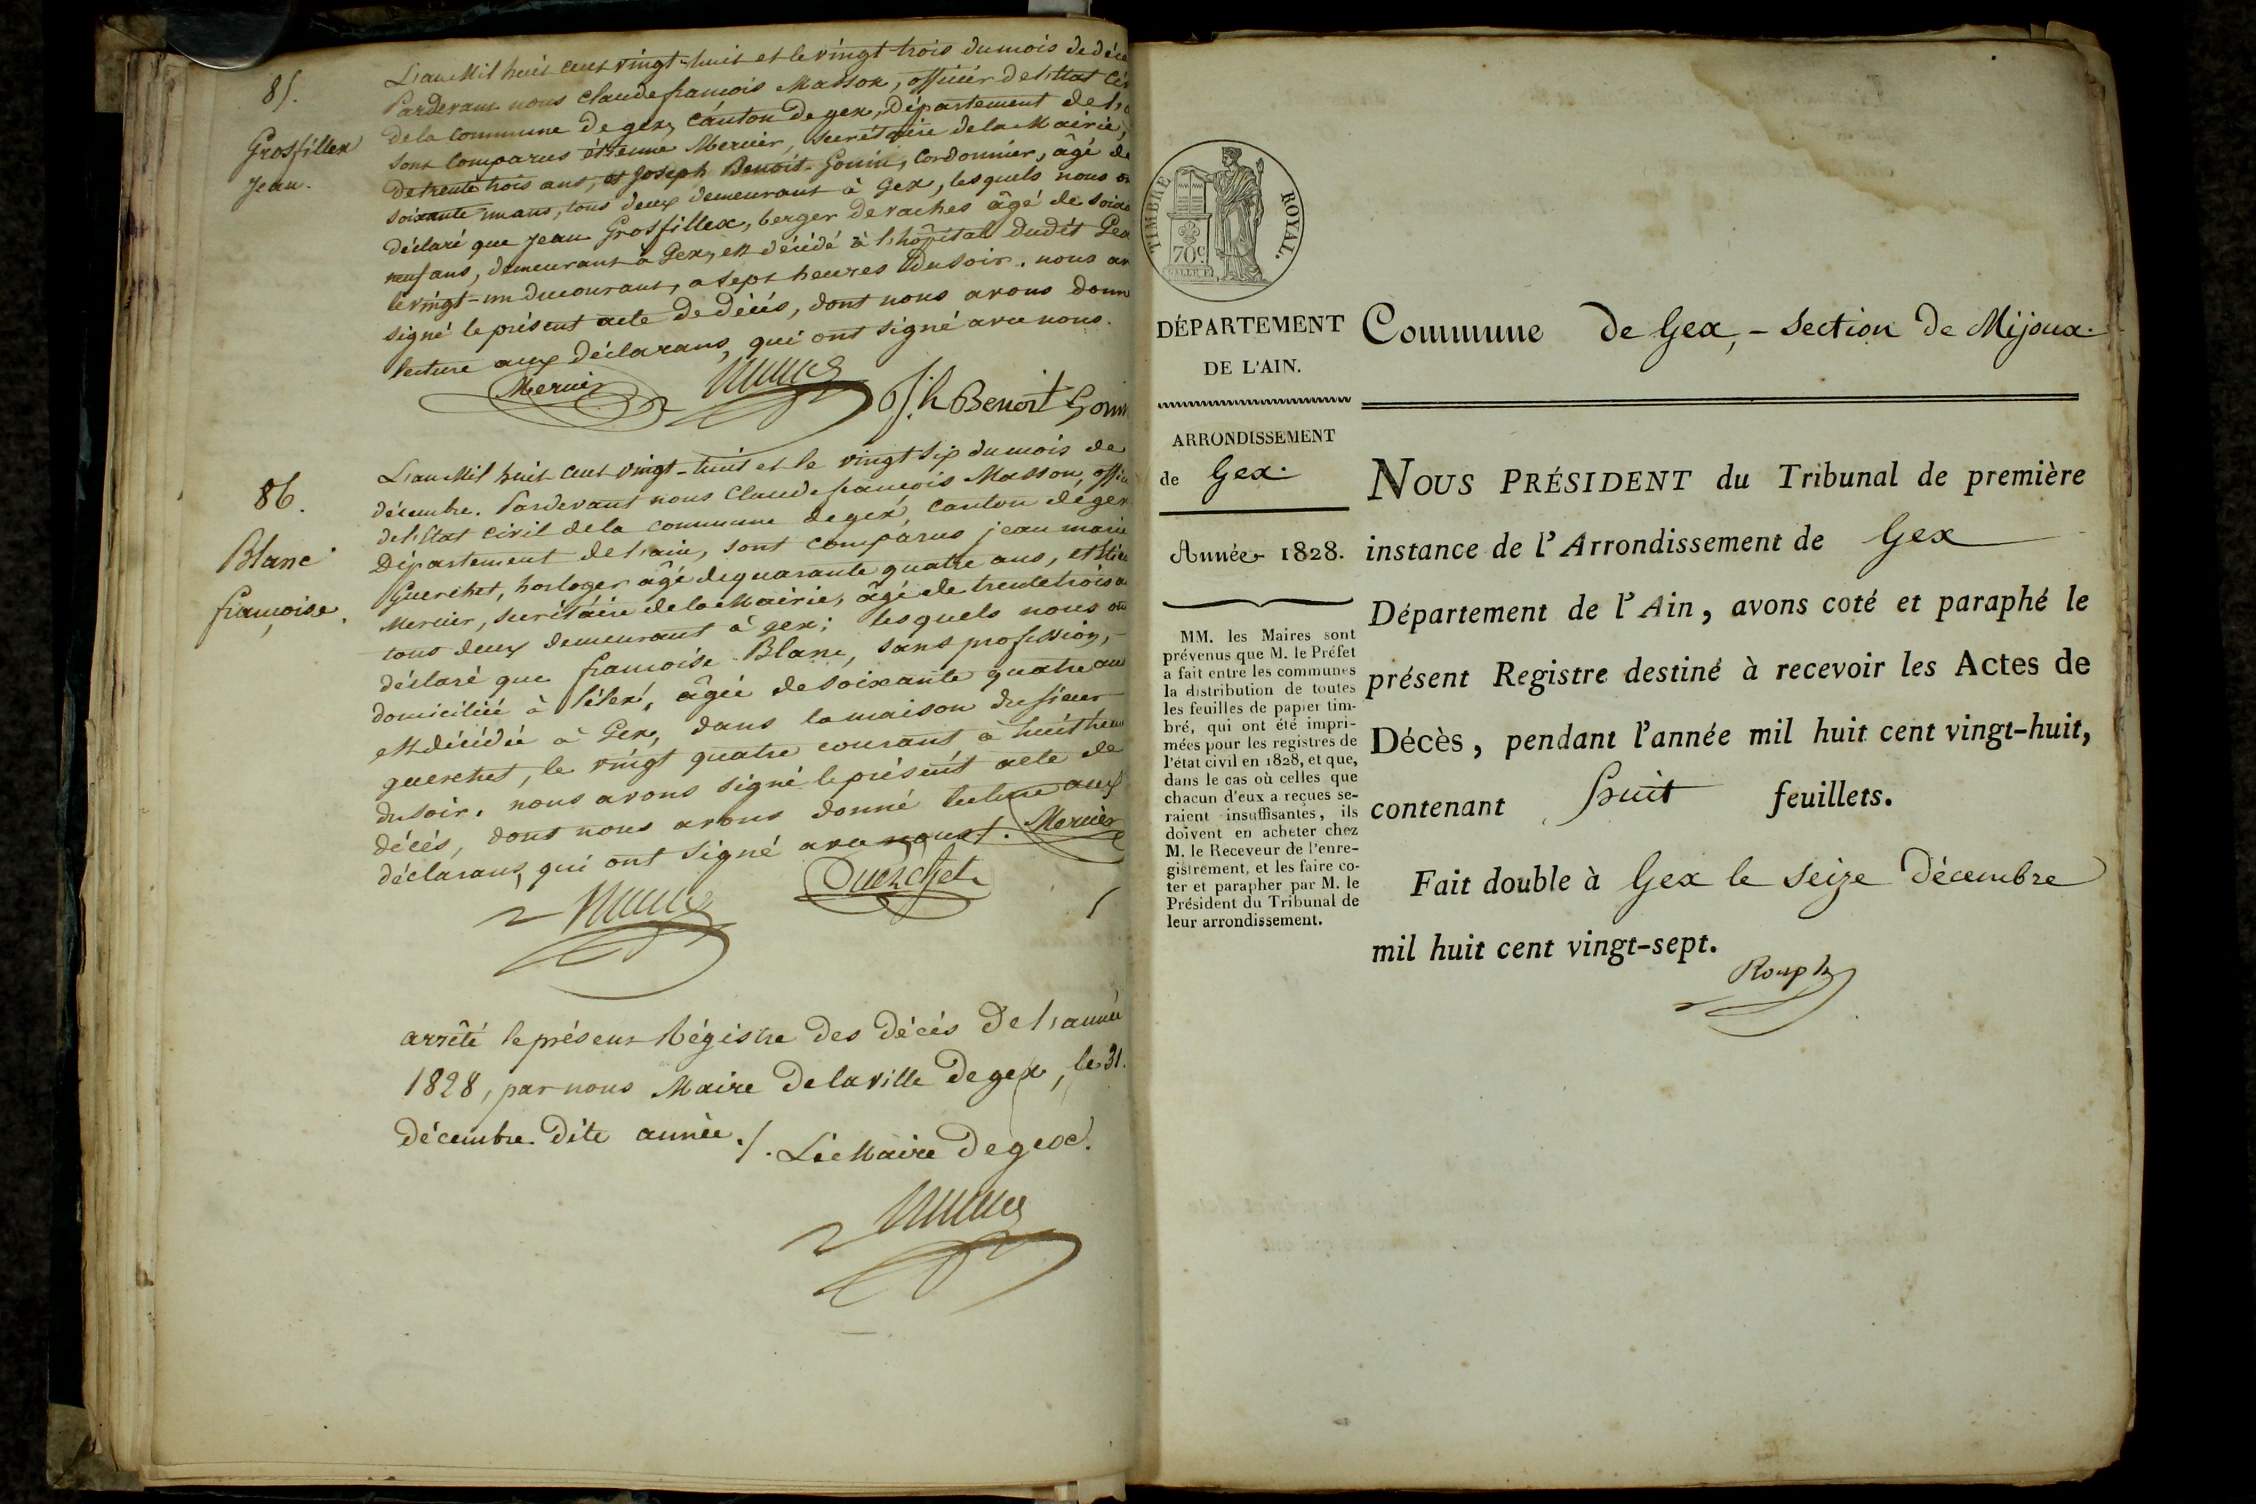 85.
Grosfillex
Jean.
L'an Mil huit cent vingt-huit et le vingt trois du mois de déce
Pardevant nous Claude françois Masson, officier de l'Etat Civ
de la commune de gex, canton de gex, Département de l'a
sont comparus étienne Mercier, secrétaire de la Mairie,
de trente trois ans, et Joseph Benoit-Gonin, Cordonnier, âgé de
soixante un ans, tous deux demeurant à Gex, lesquels nous on
déclaré que Jean Grosfillex, berger de vaches âgé de soixa
neuf ans, demeurant à Gex, est décédé à l'hôpital dudit Gex
le vingt-un du courant, a sept heures du soir. nous av
signé le présent acte de décès, dont nous avons donn
lecture aux déclarans, qui ont signé avec nous.
Mercier
Jh Benoit Gonin
86.
Blanc
françoise.
L'an Mil huit cent vingt-huit et le vingt six du mois de
décembre. Pardevant nous Claude françois Masson, offici
de l'Etat civil de la commune de gex, canton de gex
Département de l'ain, sont comparus jean marie
Guerchet, horloger âgé de quarante quatre ans, et Etie
Mercier, secrétaire de la Mairie, âgé de trente trois a
tous deux demeurant à gex; lesquels nous on
déclaré que françoise Blanc, sans profession,
domiciliée à lélex, âgée de soixante quatre ans
est décédée à Gex, dans la maison du sieur
guerchet, le vingt quatre courant à huit heu
du soir. nous avons signé le présent acte de
décès, dont nous avons donné lecture aux
déclarans, qui ont signé avec nous ./. Mercier
Guerchet
arrêté le présent Régistre des décès de l'année
1828, par nous Maire de la ville de gex, le 31.
décembre dite année ./. Le Maire de gex.
TIMBRE ROYAL.
70c
DÉPARTEMENT
DE L'AIN.
Commune de Gex, - Section de Mijoux.
ARRONDISSEMENT
de Gex.
Année 1828.
MM. les Maires sont
prévenus que M. le Préfet
a fait entre les communes
la distribution de toutes
les feuilles de papier tim-
bré, qui ont été impri-
mées pour les registres de
l'état civil en 1828, et que,
dans le cas où celles que
chacun d'eux a reçues se-
raient insuffisantes, ils
doivent en acheter chez
M. le Receveur de l'enre-
gistrement, et les faire co-
ter et parapher par M. le
Président du Tribunal de
leur arrondissement.
NOUS PRÉSIDENT du Tribunal de première
instance de l'Arrondissement de Gex
Département de l'Ain, avons coté et paraphé le
présent Registre destiné à recevoir les Actes de
Décès, pendant l'année mil huit cent vingt-huit,
contenant huit feuillets.
Fait double à Gex le seize Décembre
mil huit cent vingt-sept.